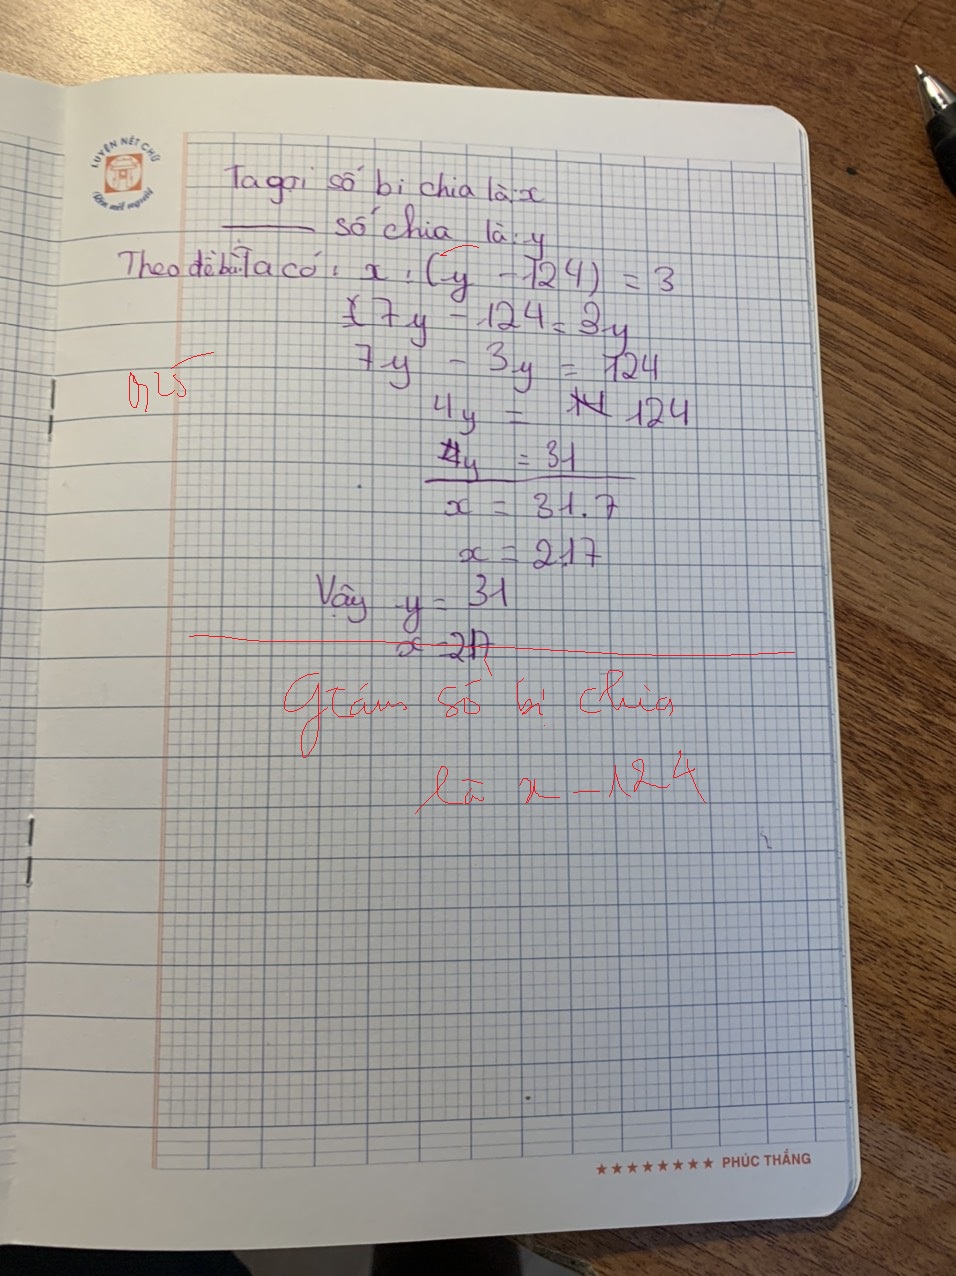 LUYỆN NÉT CHỮ
Rèn nết người
Ta gọi số bị chia là: x
số chia là: y
Theo đề bài Ta có: x : (y - 124) = 3
7y - 124 = 3y
7y - 3y = 124
0,25
4y = 124
y = 31
x = 31.7
x = 217
Vậy y = 31
x = 217
Giảm số bị chia
là x - 124
PHÚC THẮNG